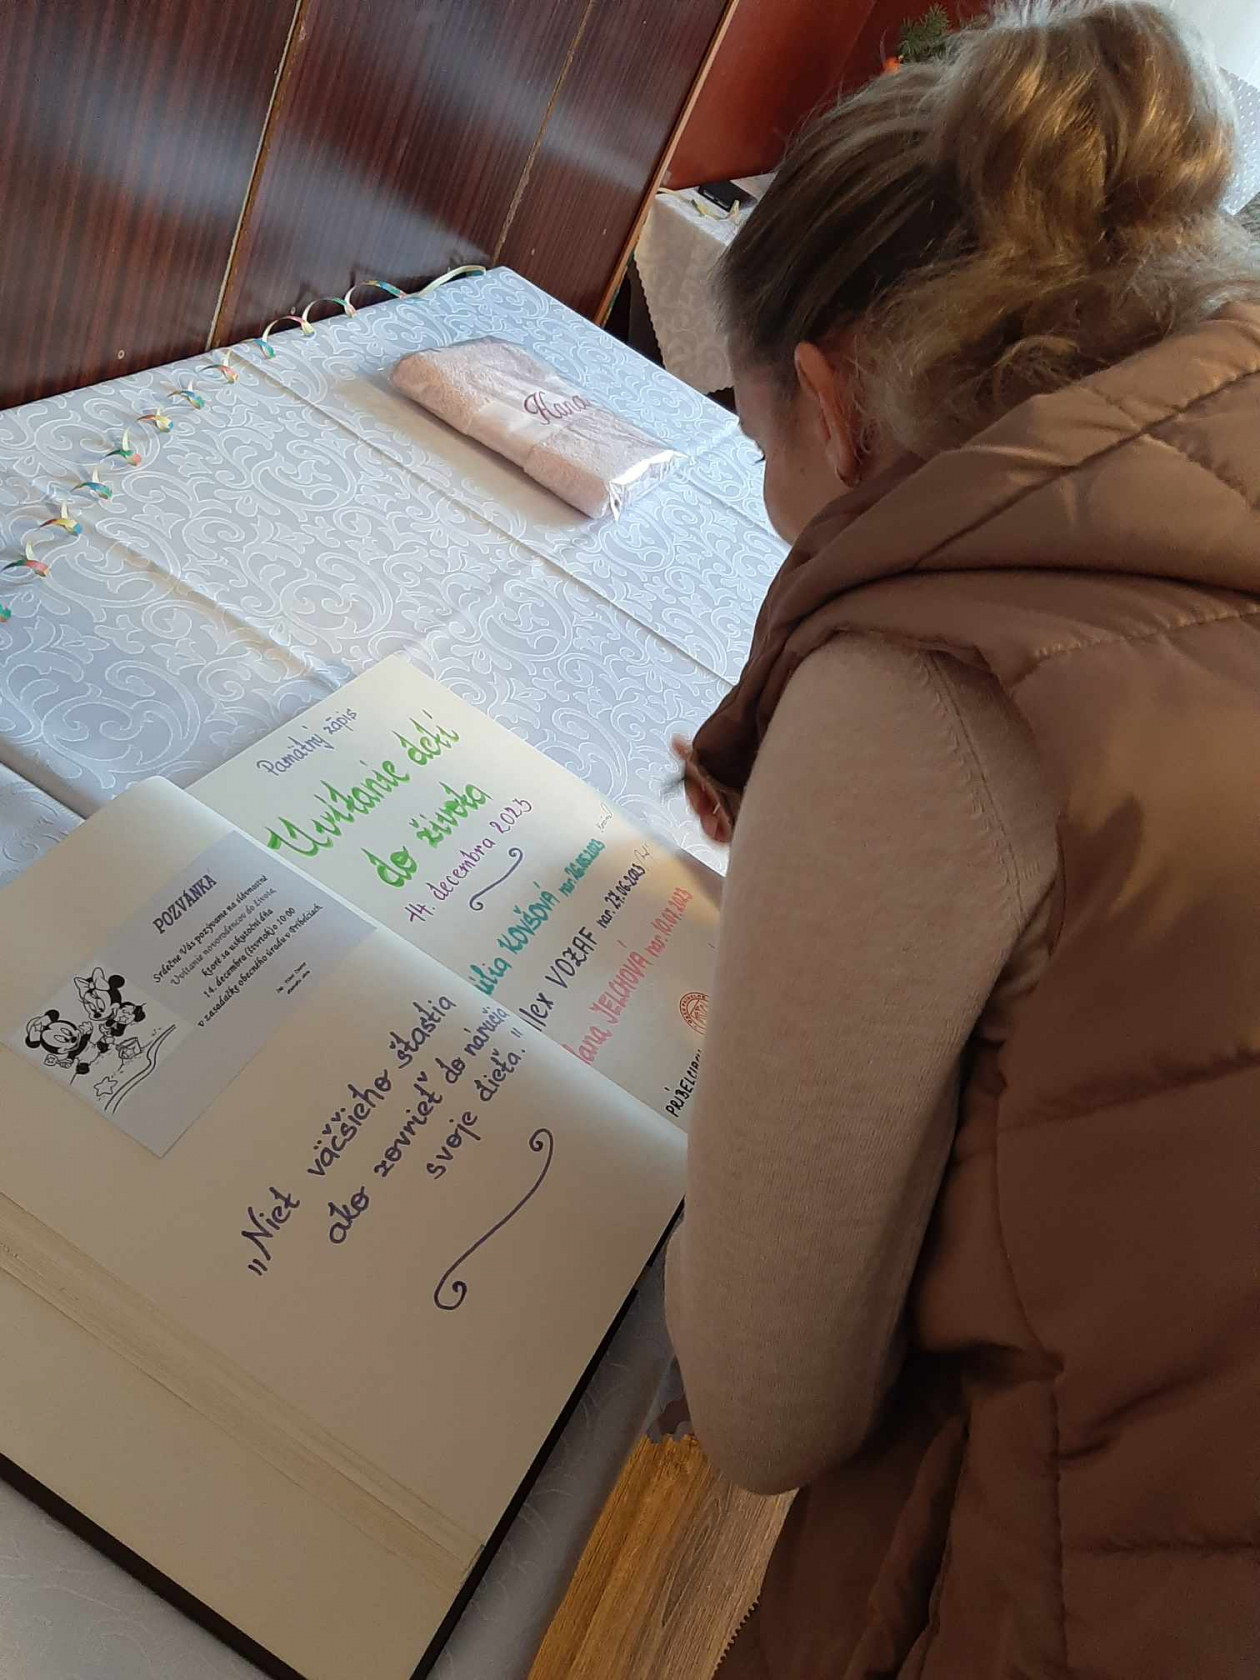 Hana
Pamätný zápis
Uvítanie detí
do života
14. decembra 2023
KOVŠOVÁ nar. 26.05.2023
lex VOZAF nar. 27.06.2023
ana JELCHOVÁ nar. 10.07.2023
PRÍBELCIACH
POZVÁNKA
Srdečne Vás pozývame na slávnostné
Uvítanie novorodencov do života
ktoré sa uskutoční dňa
14. decembra (štvrtok) o 10:00
v zasadačke obecného úradu v Príbelciach
„Niet väčšieho šťastia
ako zovrieť do náručia
svoje dieťa."